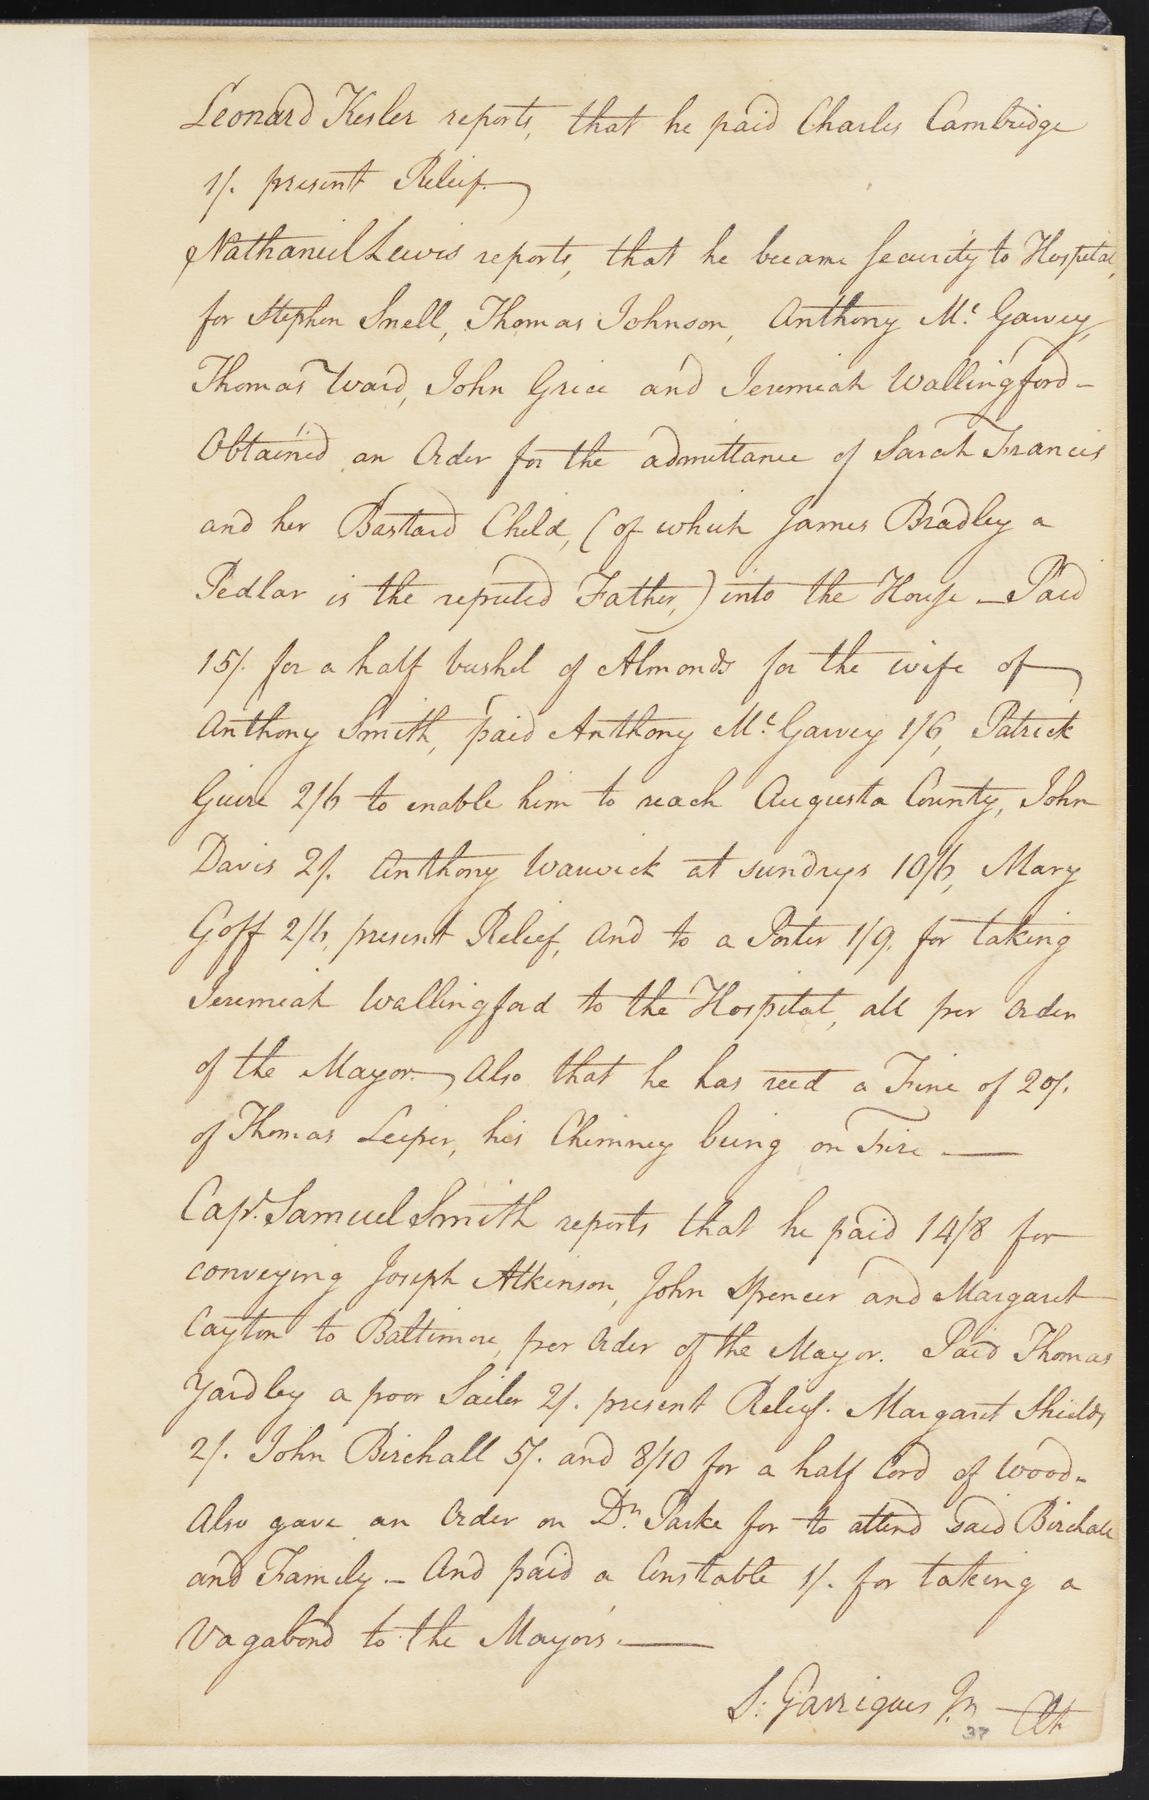 Leonard Kesler reports, that he paid Charles Cambridge
1/. present Relief.
Nathaniel Lewis reports, that he became Security to Hospital,
for Stephen Snell, Thomas Johnson, Anthony Mc. Garvey,
Thomas Ward, John Grice and Jeremiah Wallingford -
Obtained an Order for the admittance of Sarah Francis
and her Bastard Child, (of which James Bradley a
Pedlar is the reputed Father,) into the House - Paid
15/. for a half bushel of Almonds for the wife of
Anthony Smith, paid Anthony Mc. Garvey 1/6, Patrick
Guire 2/6 to enable him to reach Augusta County, John
Davis 2/. Anthony Warwick at sundrys 10/6, Mary
Goff 2/6, present Relief, and to a Porter 1/9. for taking
Jeremiah Wallingford to the Hospital, all per Order
of the Mayor. Also that he has recd a Fine of 20/.
of Thomas Leiper, his Chimney being on Fire -
Capt. Samuel Smith reports that he paid 14/8 for
conveying Joseph Atkinson, John Spencer and Margaret
Cayton to Baltimore, per Order of the Mayor. Paid Thomas
Yardley a poor Sailer 2/. present Relief. Margaret Shields
2/. John Birchall 5/. and 8/10 for a half Cord of Wood -
Also gave an Order on Dr. Parke for to attend said Birchall
and Family - And paid a Constable 1/. for taking a
Vagabond to the Mayors. -
S: Garrigues Jn Clk
37